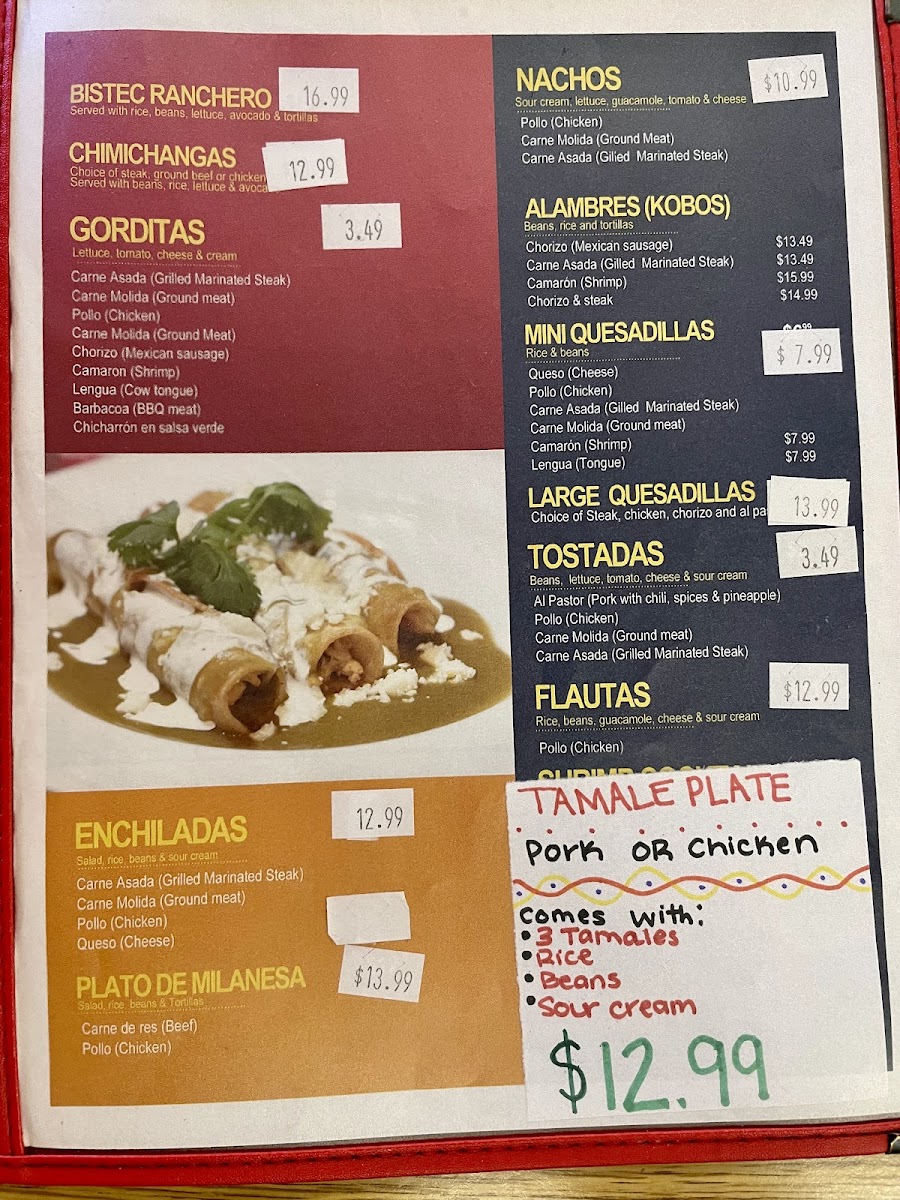 BISTEC RANCHERO 16.99
Served with rice, beans, lettuce, avocado & tortillas
CHIMICHANGAS 12.99
Choice of steak, ground beef or chicken
Served with beans, rice, lettuce &
GORDITAS 3.49
Lettuce, tomato, cheese & cream
Carne Asada (Grilled Marinated Steak)
Carne Molida (Ground meat)
Pollo (Chicken)
Carne Molida (Ground Meat)
Chorizo (Mexican sausage)
Camaron (Shrimp)
Lengua (Cow tongue)
Barbacoa (BBQ meat)
Chicharrón en salsa verde
ENCHILADAS 12.99
Salad, rice, beans & sour cream
Carne Asada (Grilled Marinated Steak)
Carne Molida (Ground meat)
Pollo (Chicken)
Queso (Cheese)
PLATO DE MILANESA $13.99
Salad, rice, beans & Tortillas
Carne de res (Beef)
Pollo (Chicken)
NACHOS $10.99
Sour cream, lettuce, guacamole, tomato & cheese
Pollo (Chicken)
Carne Molida (Ground Meat)
Carne Asada (Gilled Marinated Steak)
ALAMBRES (KOBOS)
Beans, rice and tortillas
Chorizo (Mexican sausage) $13.49
Carne Asada (Gilled Marinated Steak) $13.49
Camarón (Shrimp) $15.99
Chorizo & steak $14.99
MINI QUESADILLAS $ 7.99
Rice & beans
Queso (Cheese)
Pollo (Chicken)
Carne Asada (Gilled Marinated Steak)
Carne Molida (Ground meat)
Camarón (Shrimp) $7.99
Lengua (Tongue) $7.99
LARGE QUESADILLAS 13.99
Choice of Steak, chicken, chorizo and al
TOSTADAS 3.49
Beans, lettuce, tomato, cheese & sour cream
Al Pastor (Pork with chili, spices & pineapple)
Pollo (Chicken)
Carne Molida (Ground meat)
Carne Asada (Grilled Marinated Steak)
FLAUTAS $12.99
Rice, beans, guacamole, cheese & sour cream
Pollo (Chicken)
TAMALE PLATE
Pork OR Chicken
comes with:
• 3 Tamales
• Rice
• Beans
• Sour cream
$12.99